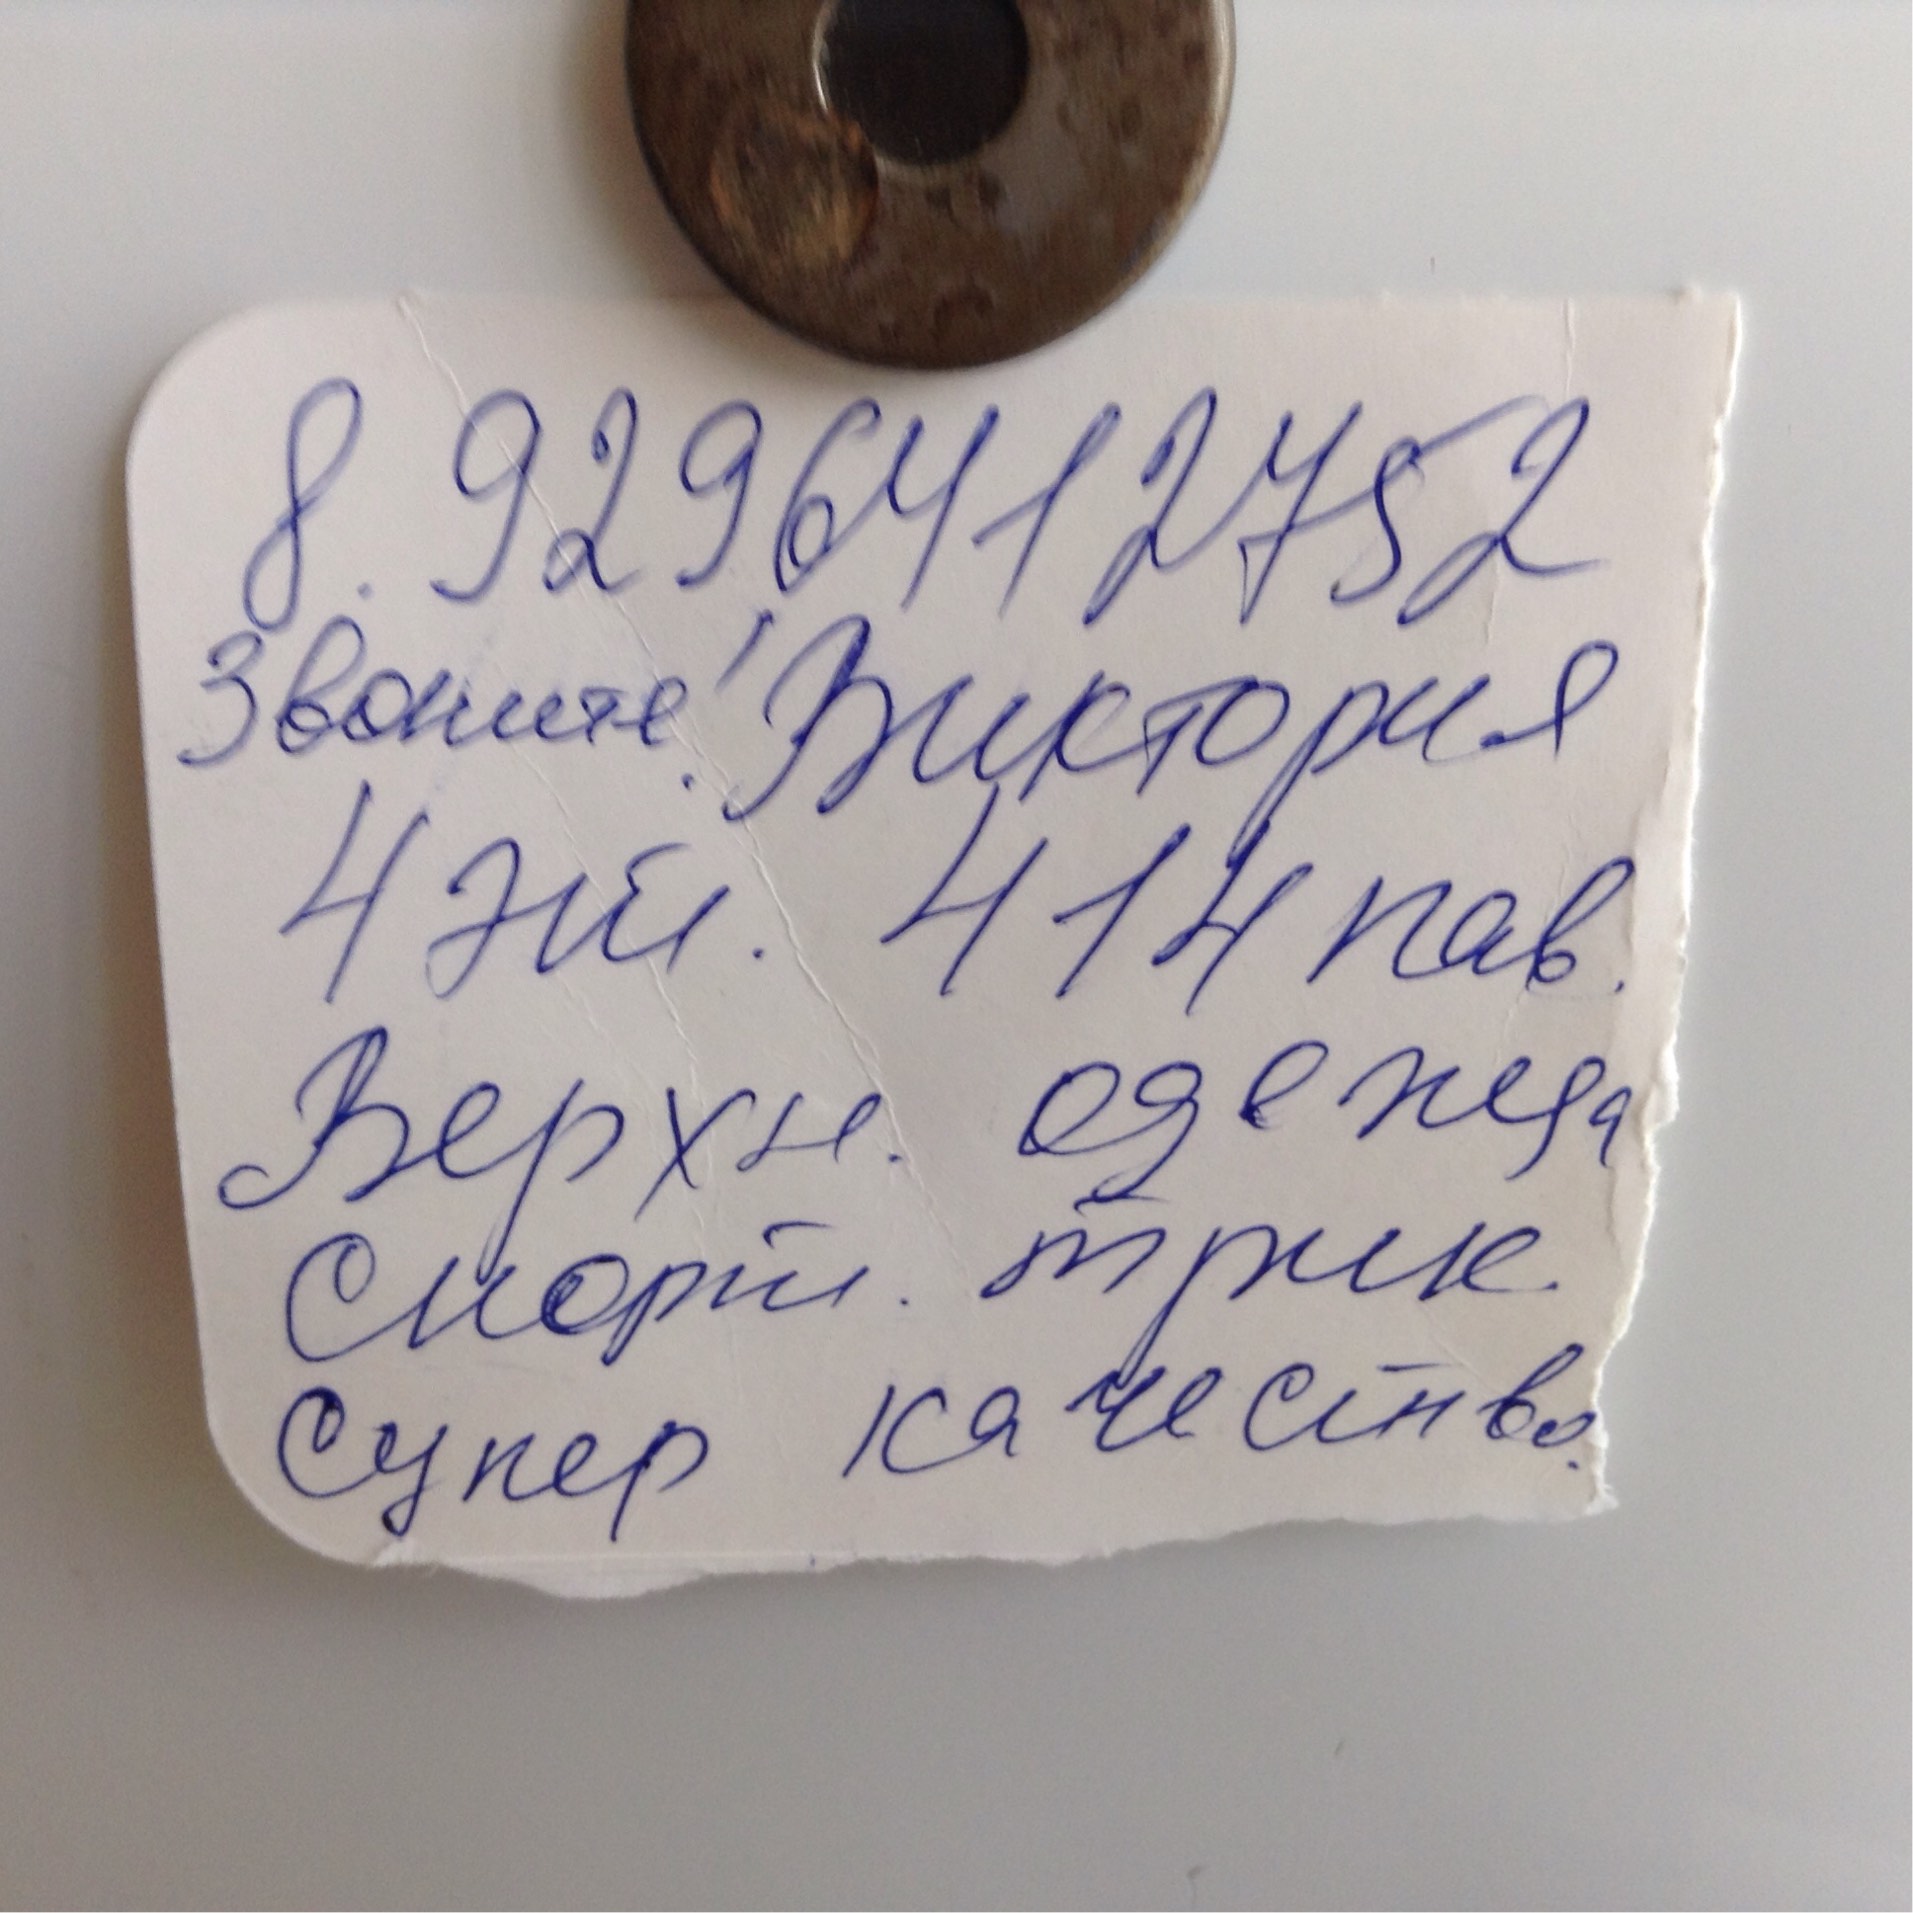 8. 9296412752
Звоните! Виктория
4 эт. 414 пав.
Верхн. одежда
Спорт. трик.
Супер качество.